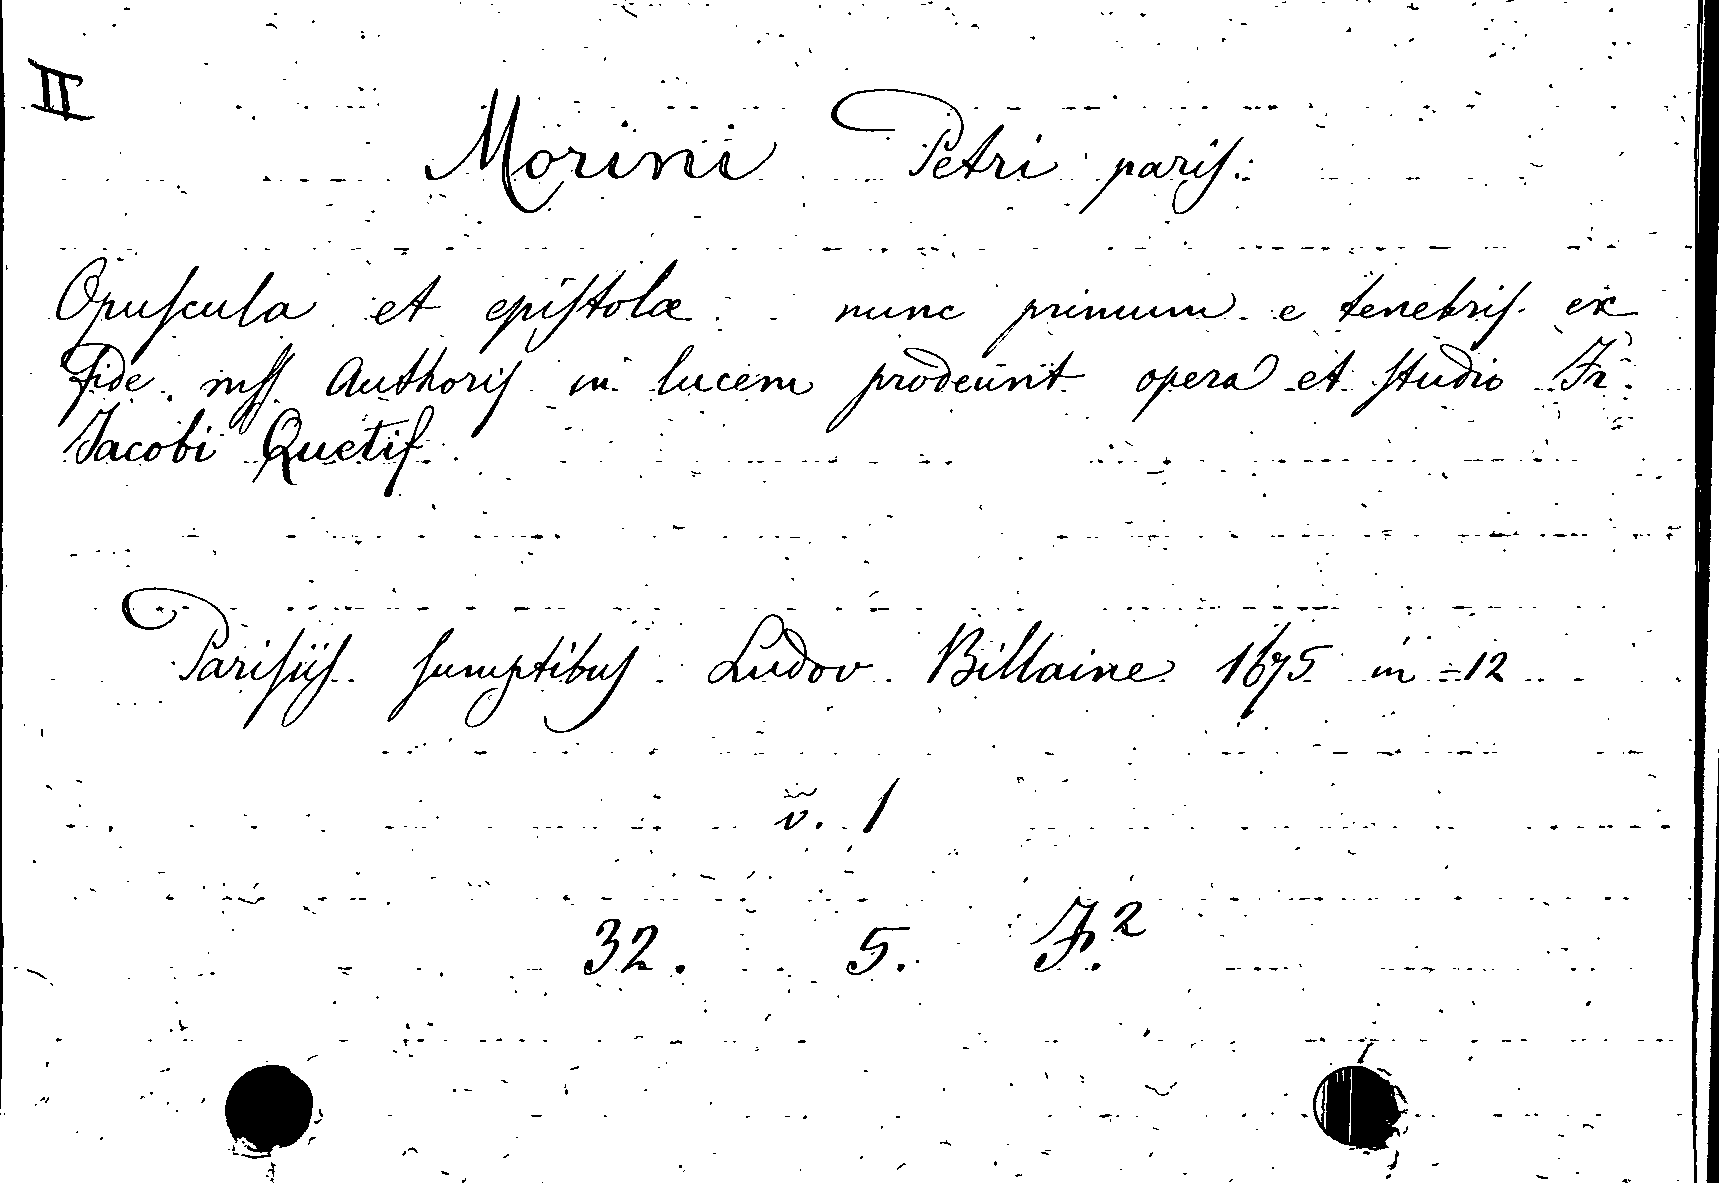 II
Morini Petri pariſ:
Opuſcula et epiſtolæ nunc primum e tenebriſ ex
fide mſſ Authoriſ in lucem prodeunt opera et ſtudio Fr.
Jacobi Quetif
Pariſiiſ ſumptibuſ Ludov. Billaine 1675 in =12
v. 1
32. 5. F.²